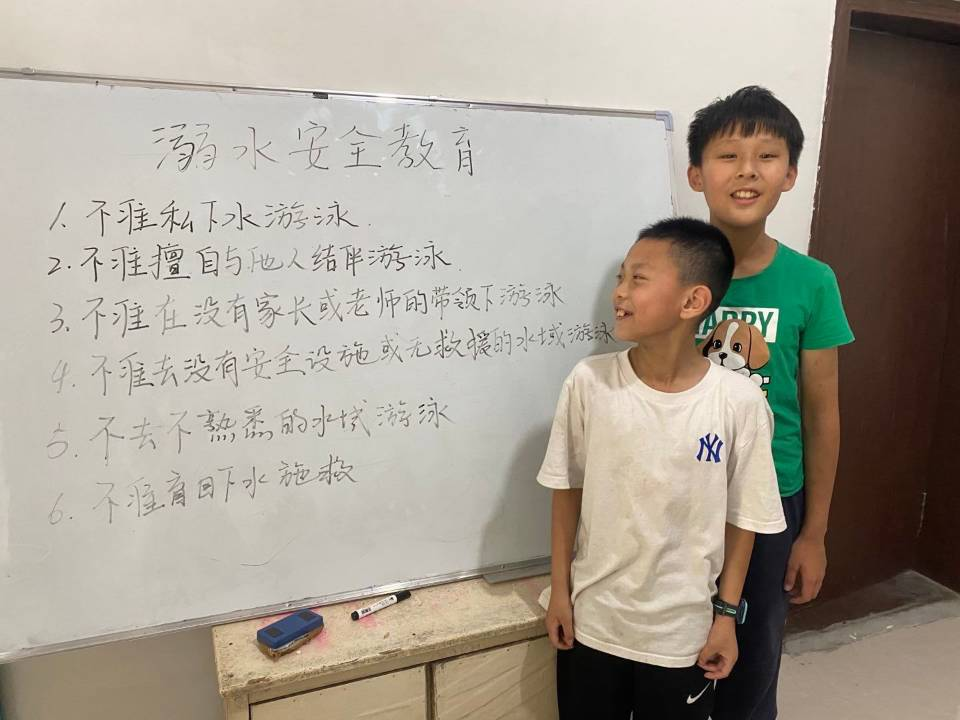 溺水安全教育
1. 不准私下水游泳.
2. 不准擅自与他人结伴游泳.
3. 不准在没有家长或老师的带领下游泳
4. 不准去没有安全设施或无救援的水域游泳
5. 不去不熟悉的水域游泳
6. 不准盲目下水施救
NY